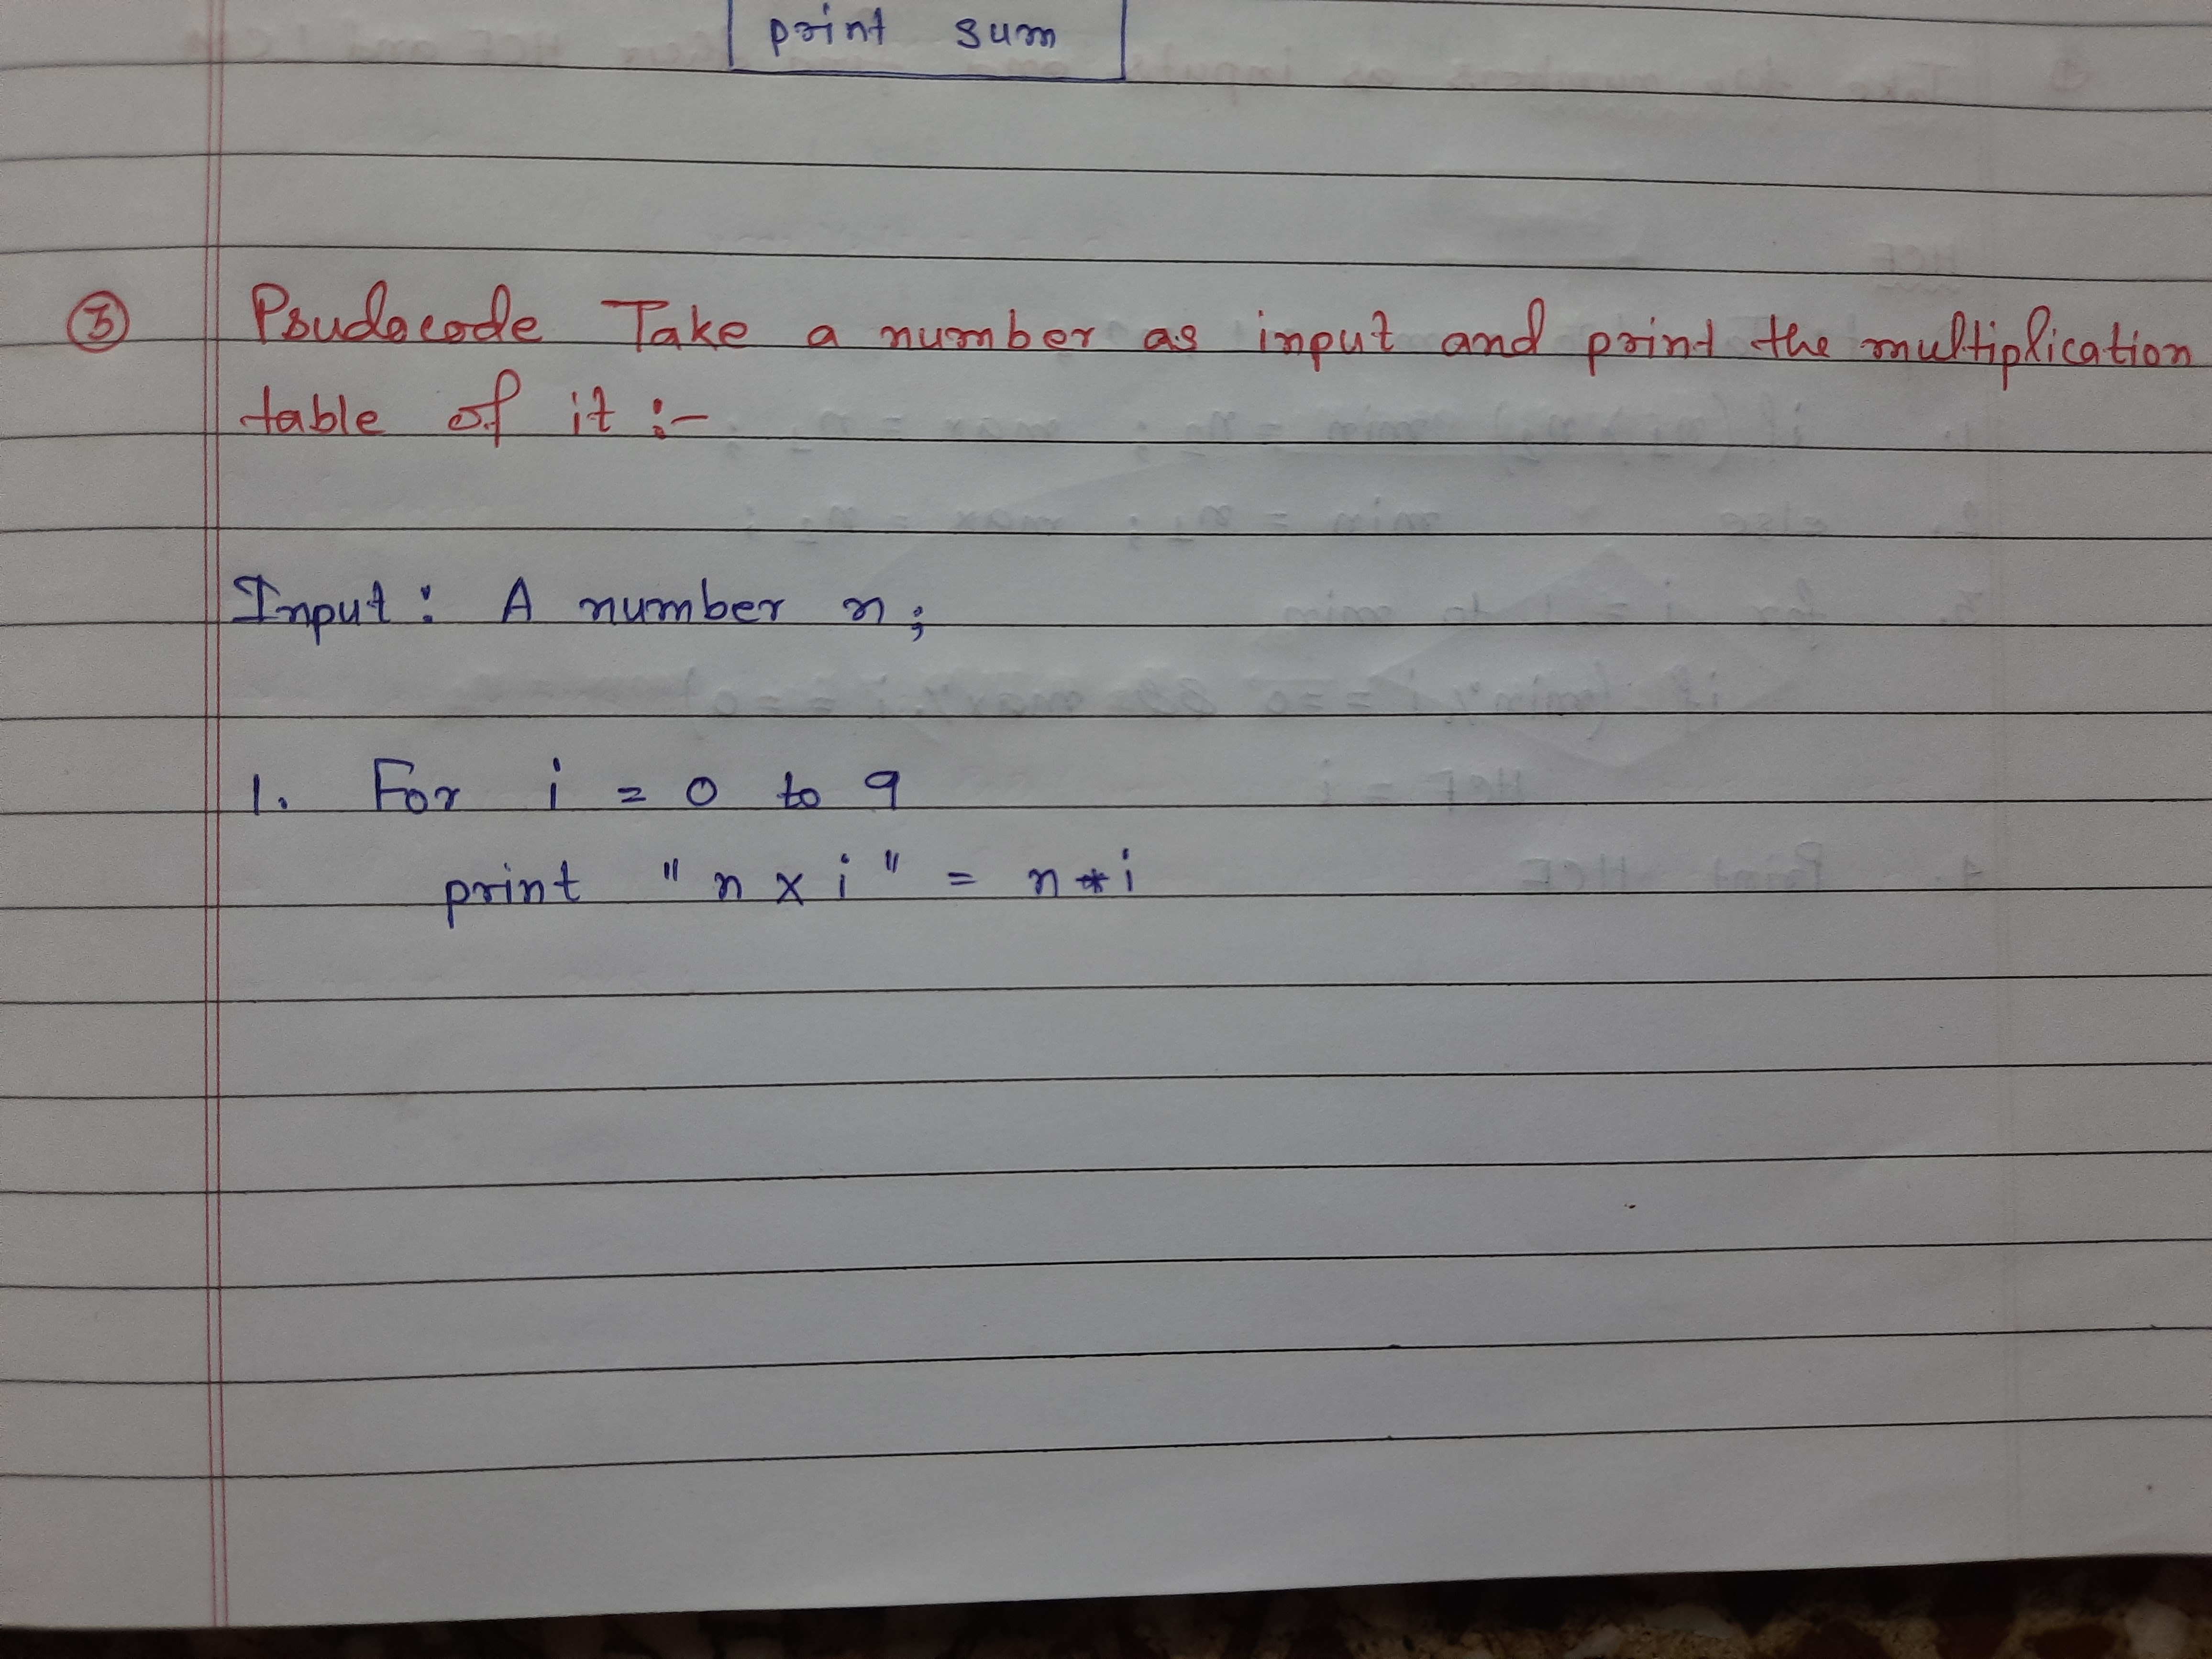 print sum
3 Psudocode Take a number as input and print the multiplication
table of it :-
Input : A number n ;
1. For i = 0 to 9
print " n x i " = n * i